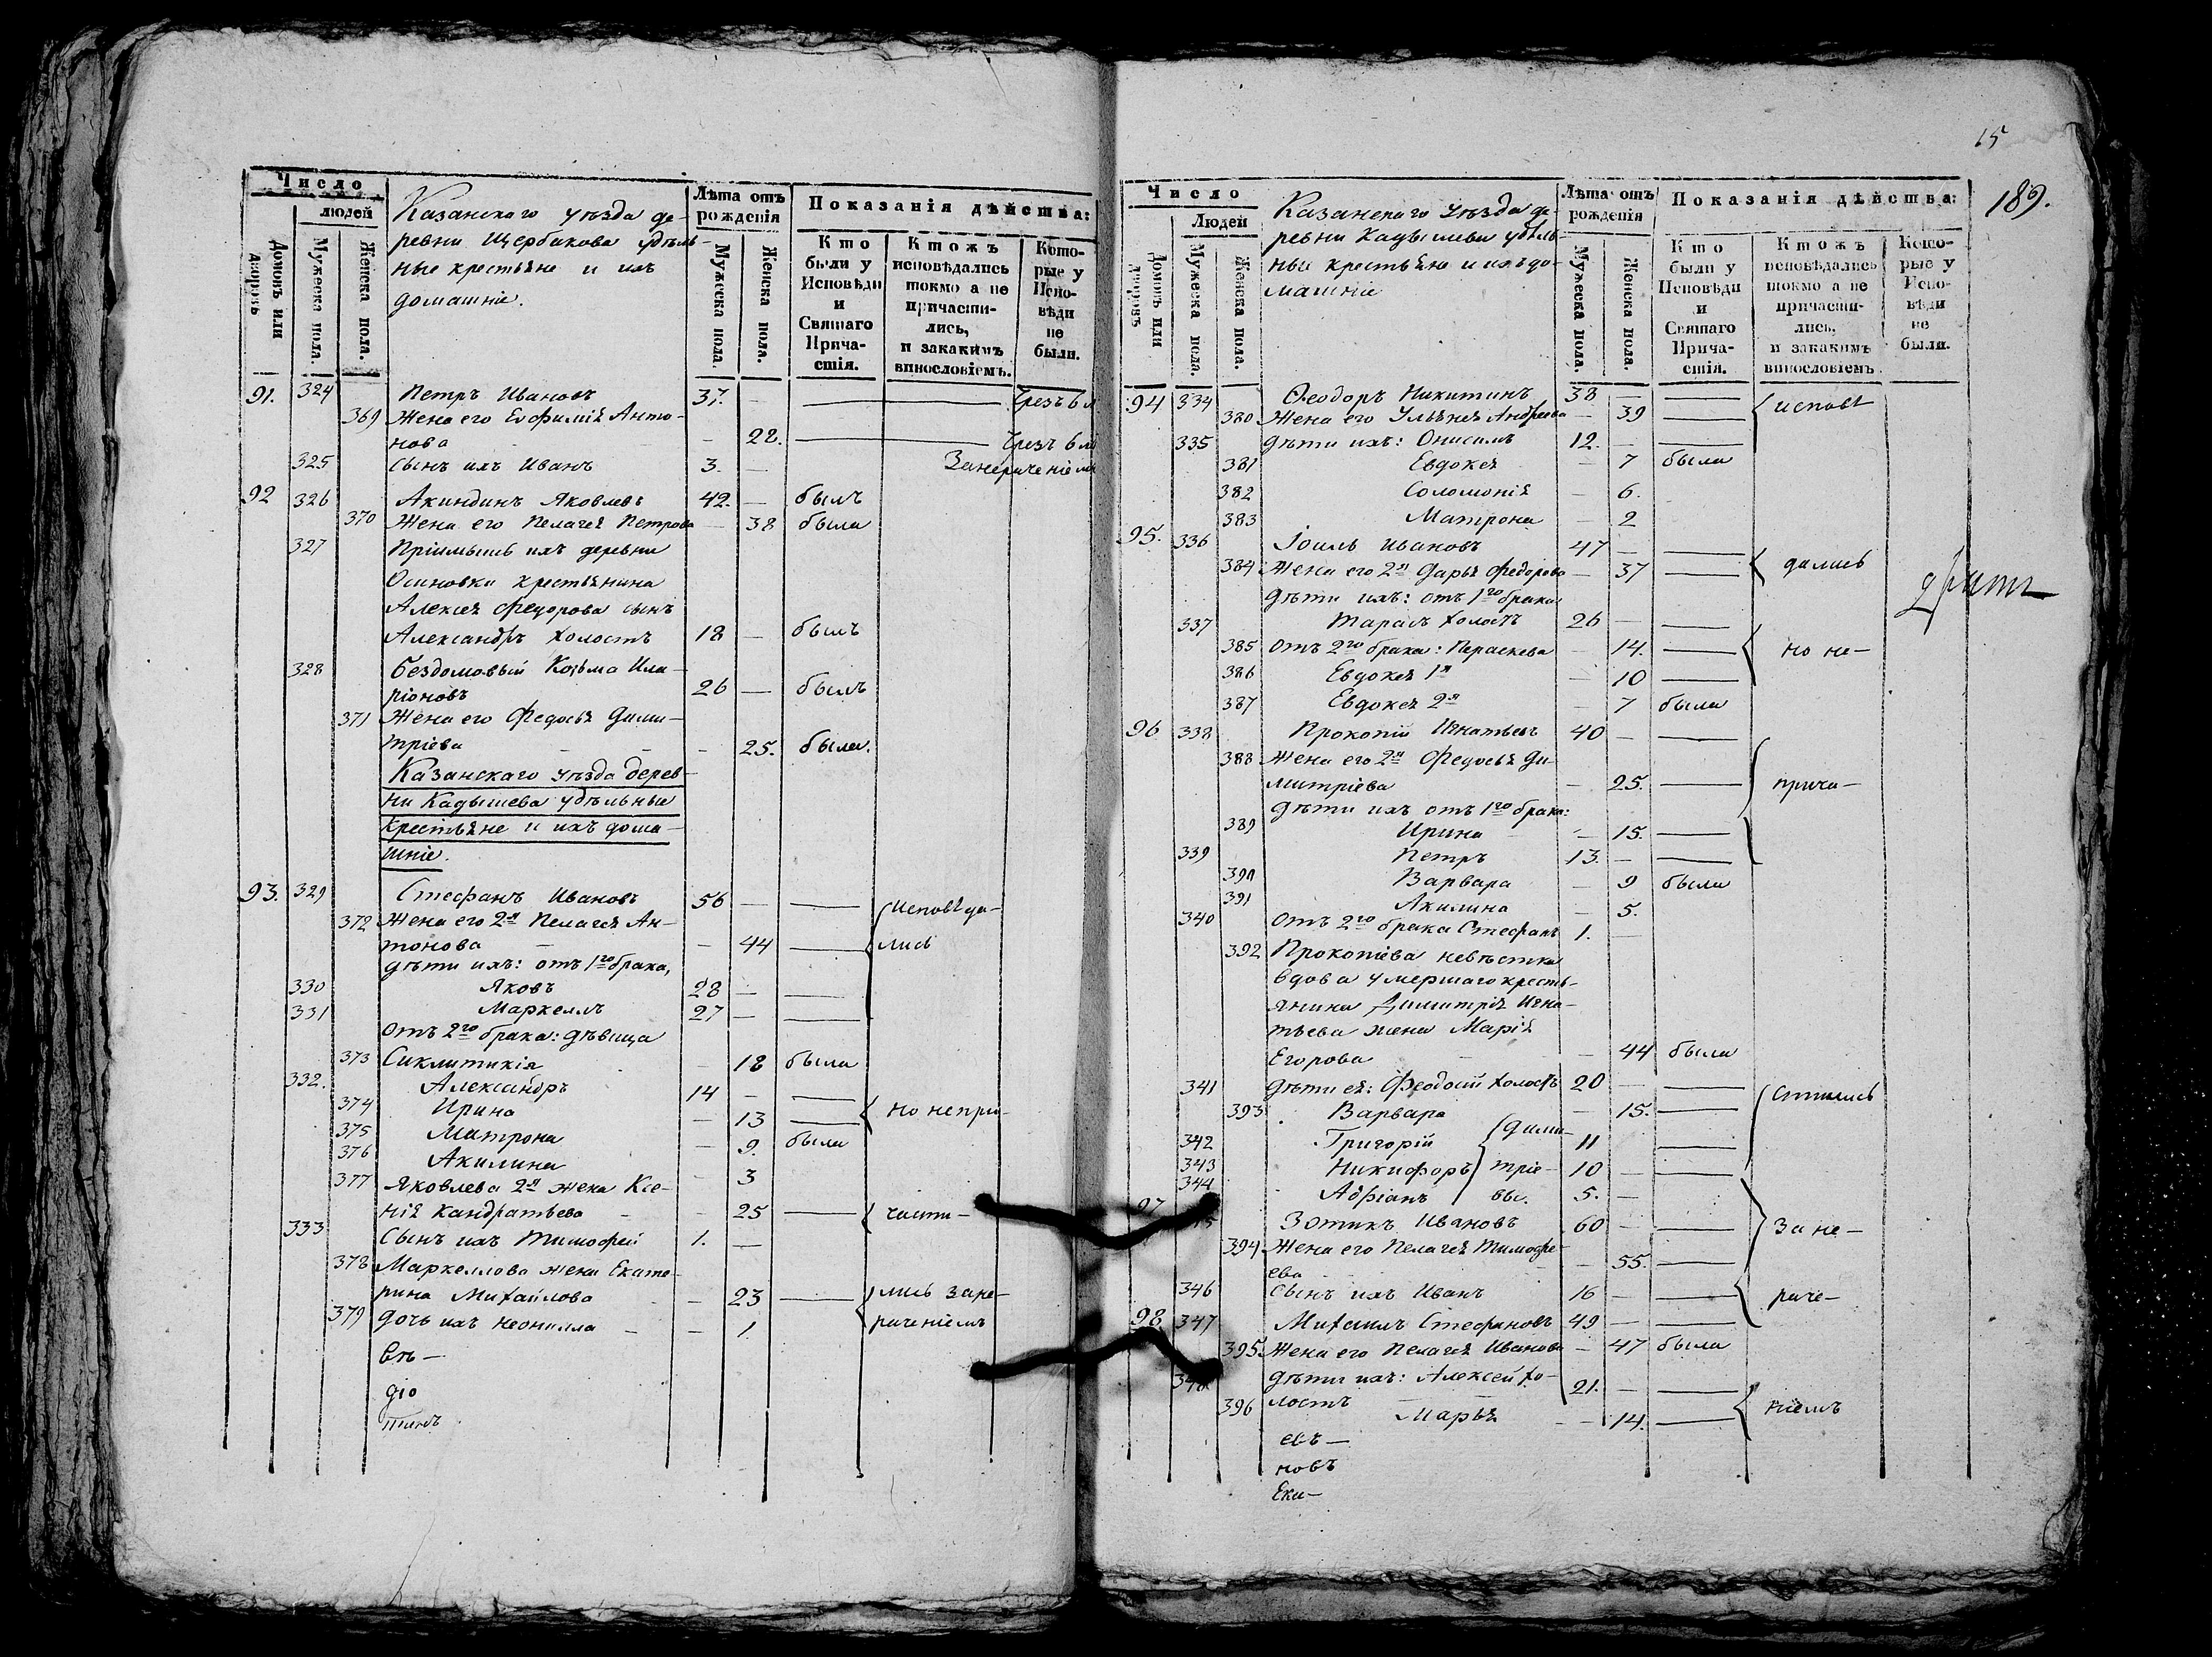 15
189.
Число
людей
Домовъ или дворовъ
Мужеска пола.
Женска пола.
Казанскаго уѣзда де-
ревни Щербакова удѣль-
ные крестьяне и ихъ
домашніе.
Лѣта отъ рожденія
Мужеска пола
Женска пола.
Показанія дѣйства:
Кто были у Исповѣди и Святаго Прича-стія.
Ктожъ исповѣдались токмо а не причасти-лись, и закакимъ винословіемъ.
Кото-рые у Испо-вѣди не были.
91. 324 Петръ Ивановъ 37. — Чрезъ 6 л
369 Жена его Евфимія Анто-
нова — 28. Чрезъ 6 л
325 сынъ ихъ Иванъ 3. — Занереченіемъ
92 326 Акиндинъ Яковлевъ 42. — былъ
370 Жена его Пелагея Петрова — 38 была
327 Пріимышъ ихъ деревни
Осиновки крестьянина
Алексея Федорова сынъ
Александръ холостъ 18 — былъ
328 Бездомовый Козьма Ила-
ріоновъ 26 — былъ
371 Жена его Федосья Дими-
тріева — 25. была.
Казанскаго уѣзда дерев-
ни Кадышева удѣльные
крестьяне и ихъ дома-
шніе.
93. 329 Стефанъ Ивановъ 56 — — Исповѣда-
372 Жена его 2я Пелагея Ан-
тонова — 44 — лись
дѣти ихъ: отъ 1го брака,
330 Яковъ 28 — —
331 Маркеллъ 27 — —
Отъ 2го брака: дѣвица
373 Сиклитикія — 18 была
332. Александръ 14 — —
374 Ирина — 13 — но непри-
375 Матрона — 9. была
376 Акилина 3
377 Яковлева 2я жена Ксе-
нія Кандратьева — 25 — части-
333 Сынъ ихъ Тимофей 1. —
378 Маркеллова жена Екате-
рина Михайлова — 23 — лись зане-
379 дочь ихъ Неонилла — 1. раченіемъ
Свѣ-
діо

Число
Людей
Домовъ или дворовъ
Мужеска пола.
Женска пола.
Казанскаго уѣзда де-
ревни Кадышева удѣль-
ные крестьяне и ихъ до-
машніе
Лѣта отъ рожденія
Мужеска пола.
Женска пола.
Показанія дѣйства:
Кто были у Исповѣди и Святаго Прича-стія.
Ктожъ исповѣдались токмо а не причасти-лись, и закакимъ винословіемъ
Кото-рые у Испо-вѣди не были.
94 334 Ѳеодоръ Никитинъ 38 — — исповѣ
380 Жена его Ульянея Андреева — 39 —
335 дѣти ихъ: Онисимъ 12. — —
381 Евдокея — 7 была
382 Соломонія — 6.
383 Матрона — 2
95. 336 Іоиль Ивановъ 47 — —
384 Жена его 2я Дарья Федорова — 37 — дались
дѣти ихъ: отъ 1го брака
337 Тарасъ холостъ 26 — —
385 отъ 2го брака: Параскева — 14. — но не-
386 Евдокея 1я — 10 —
387 Евдокея 2я — 7 была
96 338 Прокопій Игнатьевъ 40 — —
388 Жена его 2я Федосья Ди-
митріева — 25. — прича-
дѣти ихъ отъ 1го брака:
389 Ирина — 15. —
339 Петръ 13. — —
390 Варвара — 9 была
391 Акилина — 5.
340 Отъ 2го брака Стефанъ 1. —
392 Прокопіева невѣстка
вдова умершаго кресть-
янина Димитрія Игна-
тьева жена Марія
Егорова — 44 была
341 дѣти ея: Феодосій холостъ 20 — — стились
393 Варвара — 15. —
342 Григорій Дими- 11 —
343 Никифоръ тріе- 10 — —
344 Адріанъ вы. 5. —
97 Зотикъ Ивановъ 60 — — Зане-
394 Жена его Пелагея Тимофе-
ева — 55. —
346 Сынъ ихъ Иванъ 16 — — раче-
98 347 Михаилъ Стефановъ 49 — —
395 Жена его Пелагея Иванова — 47 была
348 дѣти ихъ: Алексей хо-
лостъ 21. — — ніемъ
396 Марья — 14. —
евъ —
новъ
Ека-